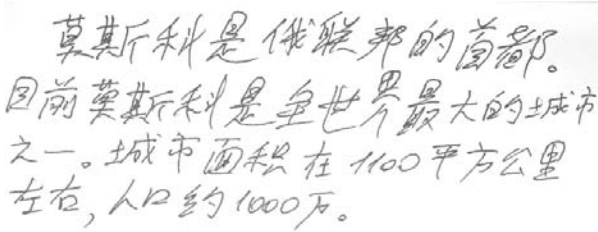 莫斯科是俄联邦的首都。
目前莫斯科是全世界最大的城市
之一。城市面积在1100平方公里
左右,人口约1000万。